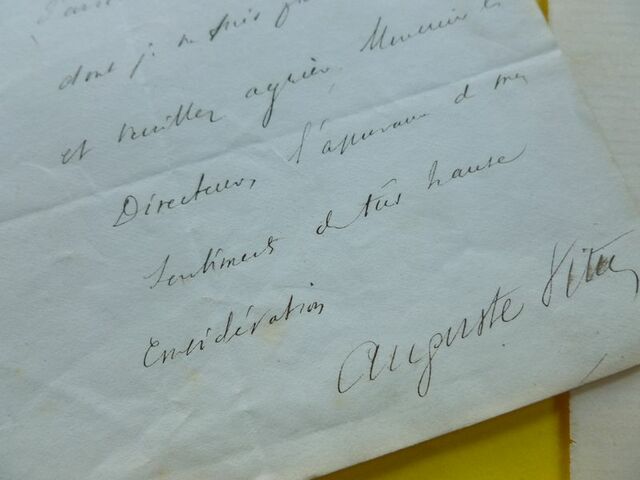 dont je
et veuillez agréer, Monsieur le
Directeur, l'assurance de mes
Sentiments de très haute
Considération
Auguste Vitu